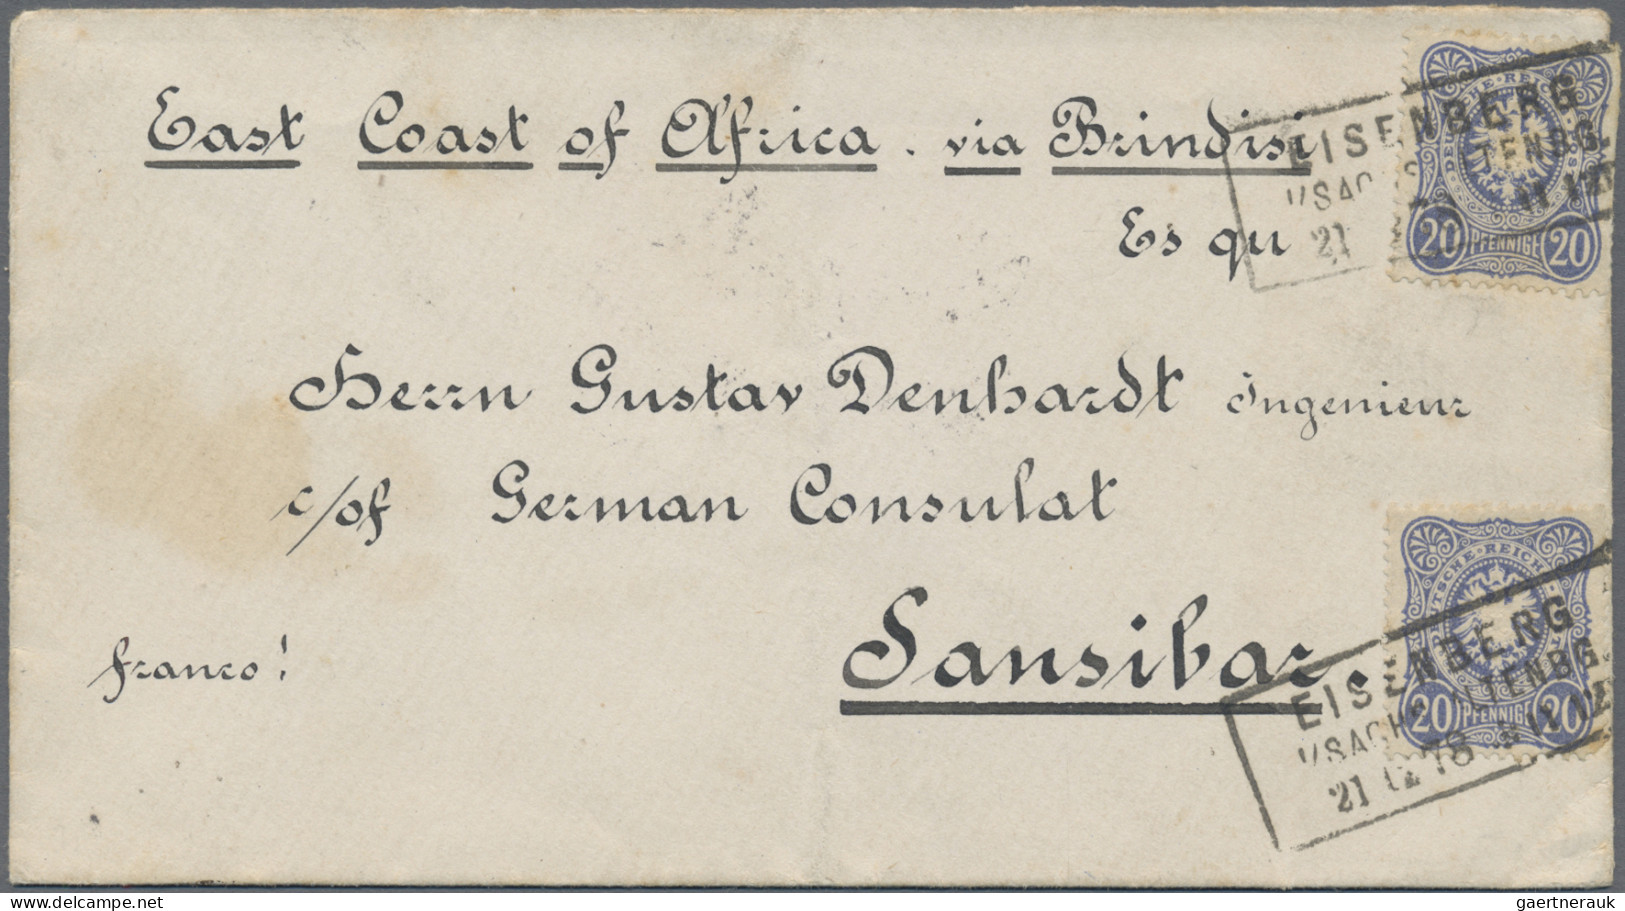 East Coast of Africa . via Brindisi
Es qu
Herrn Gustav Denhardt Ingenieur
c/of German Consulat
Sansibar.
franco!
DEUTSCHE REICHS
EISENBERG
I/SACHS TENBG.
21
20 PFENNIG 20
DEUTSCHE REICHS
EISENBERG
I/SACHS. ALTENBG.
21 12 78
20 PFENNIG 20
gaertnerauk